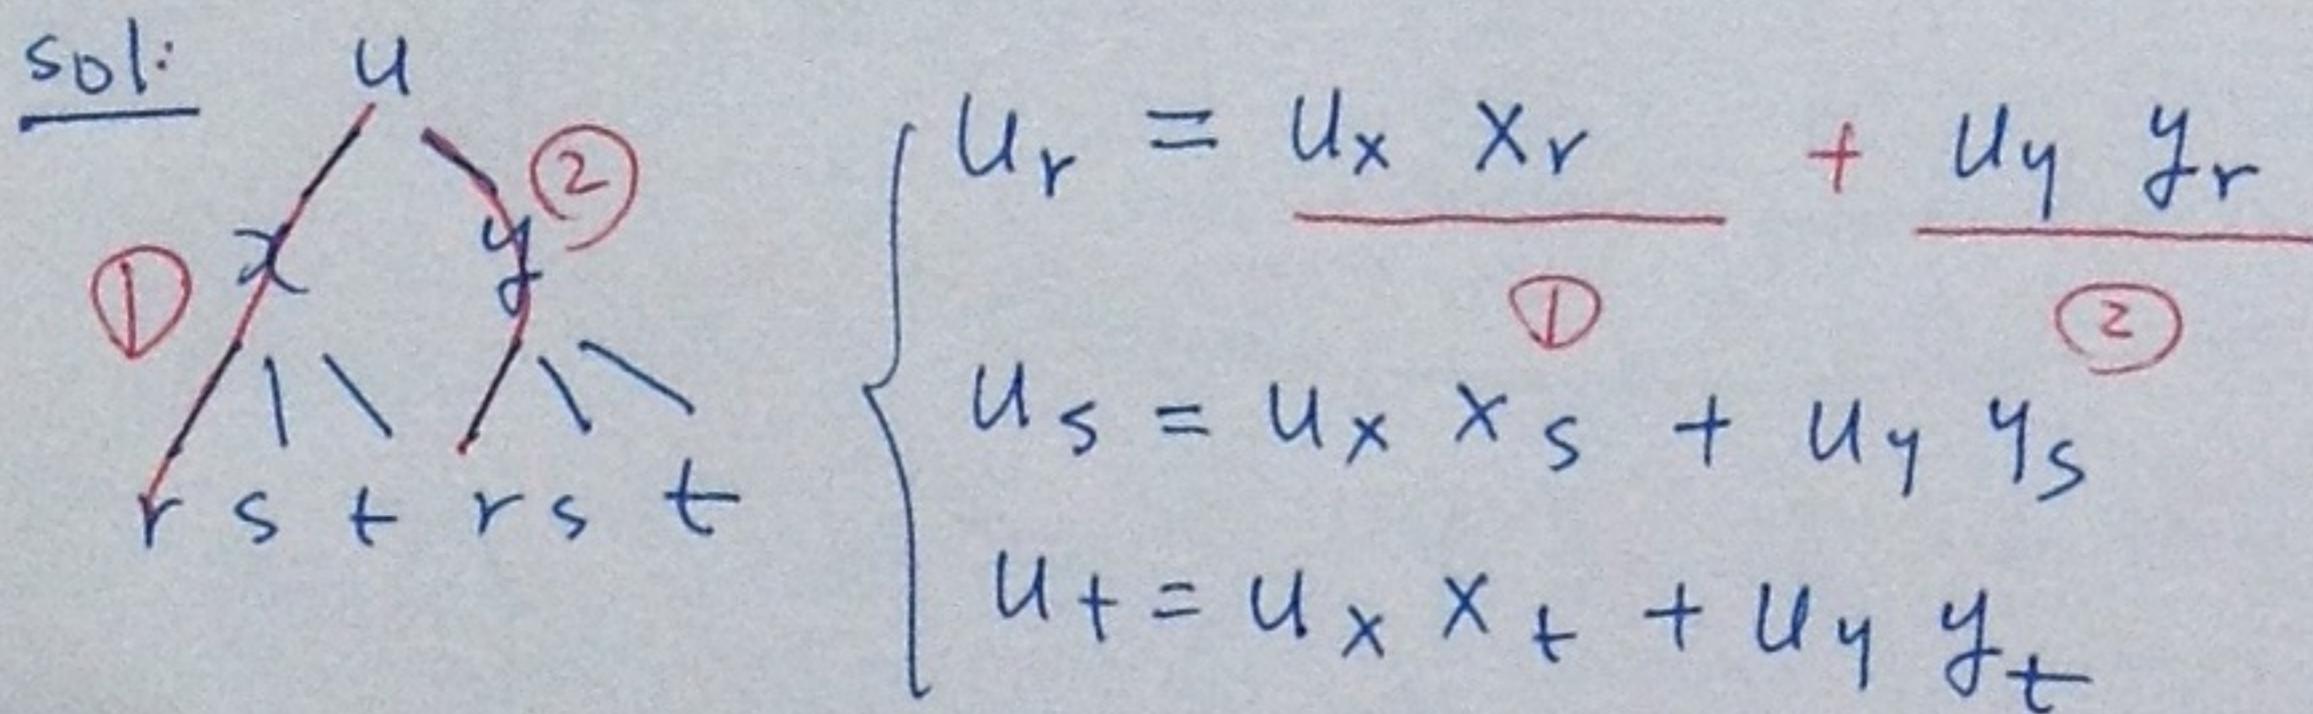 sol:
u
① x y ②
r s t r s t
u_r = u_x x_r + u_y y_r
① ②
u_s = u_x x_s + u_y y_s
u_t = u_x x_t + u_y y_t